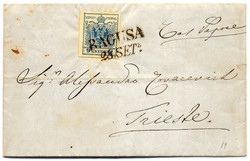 RAGUSA
23 SETT.
Col Vapore
Sigr. Alessandro Covacevich
Trieste.